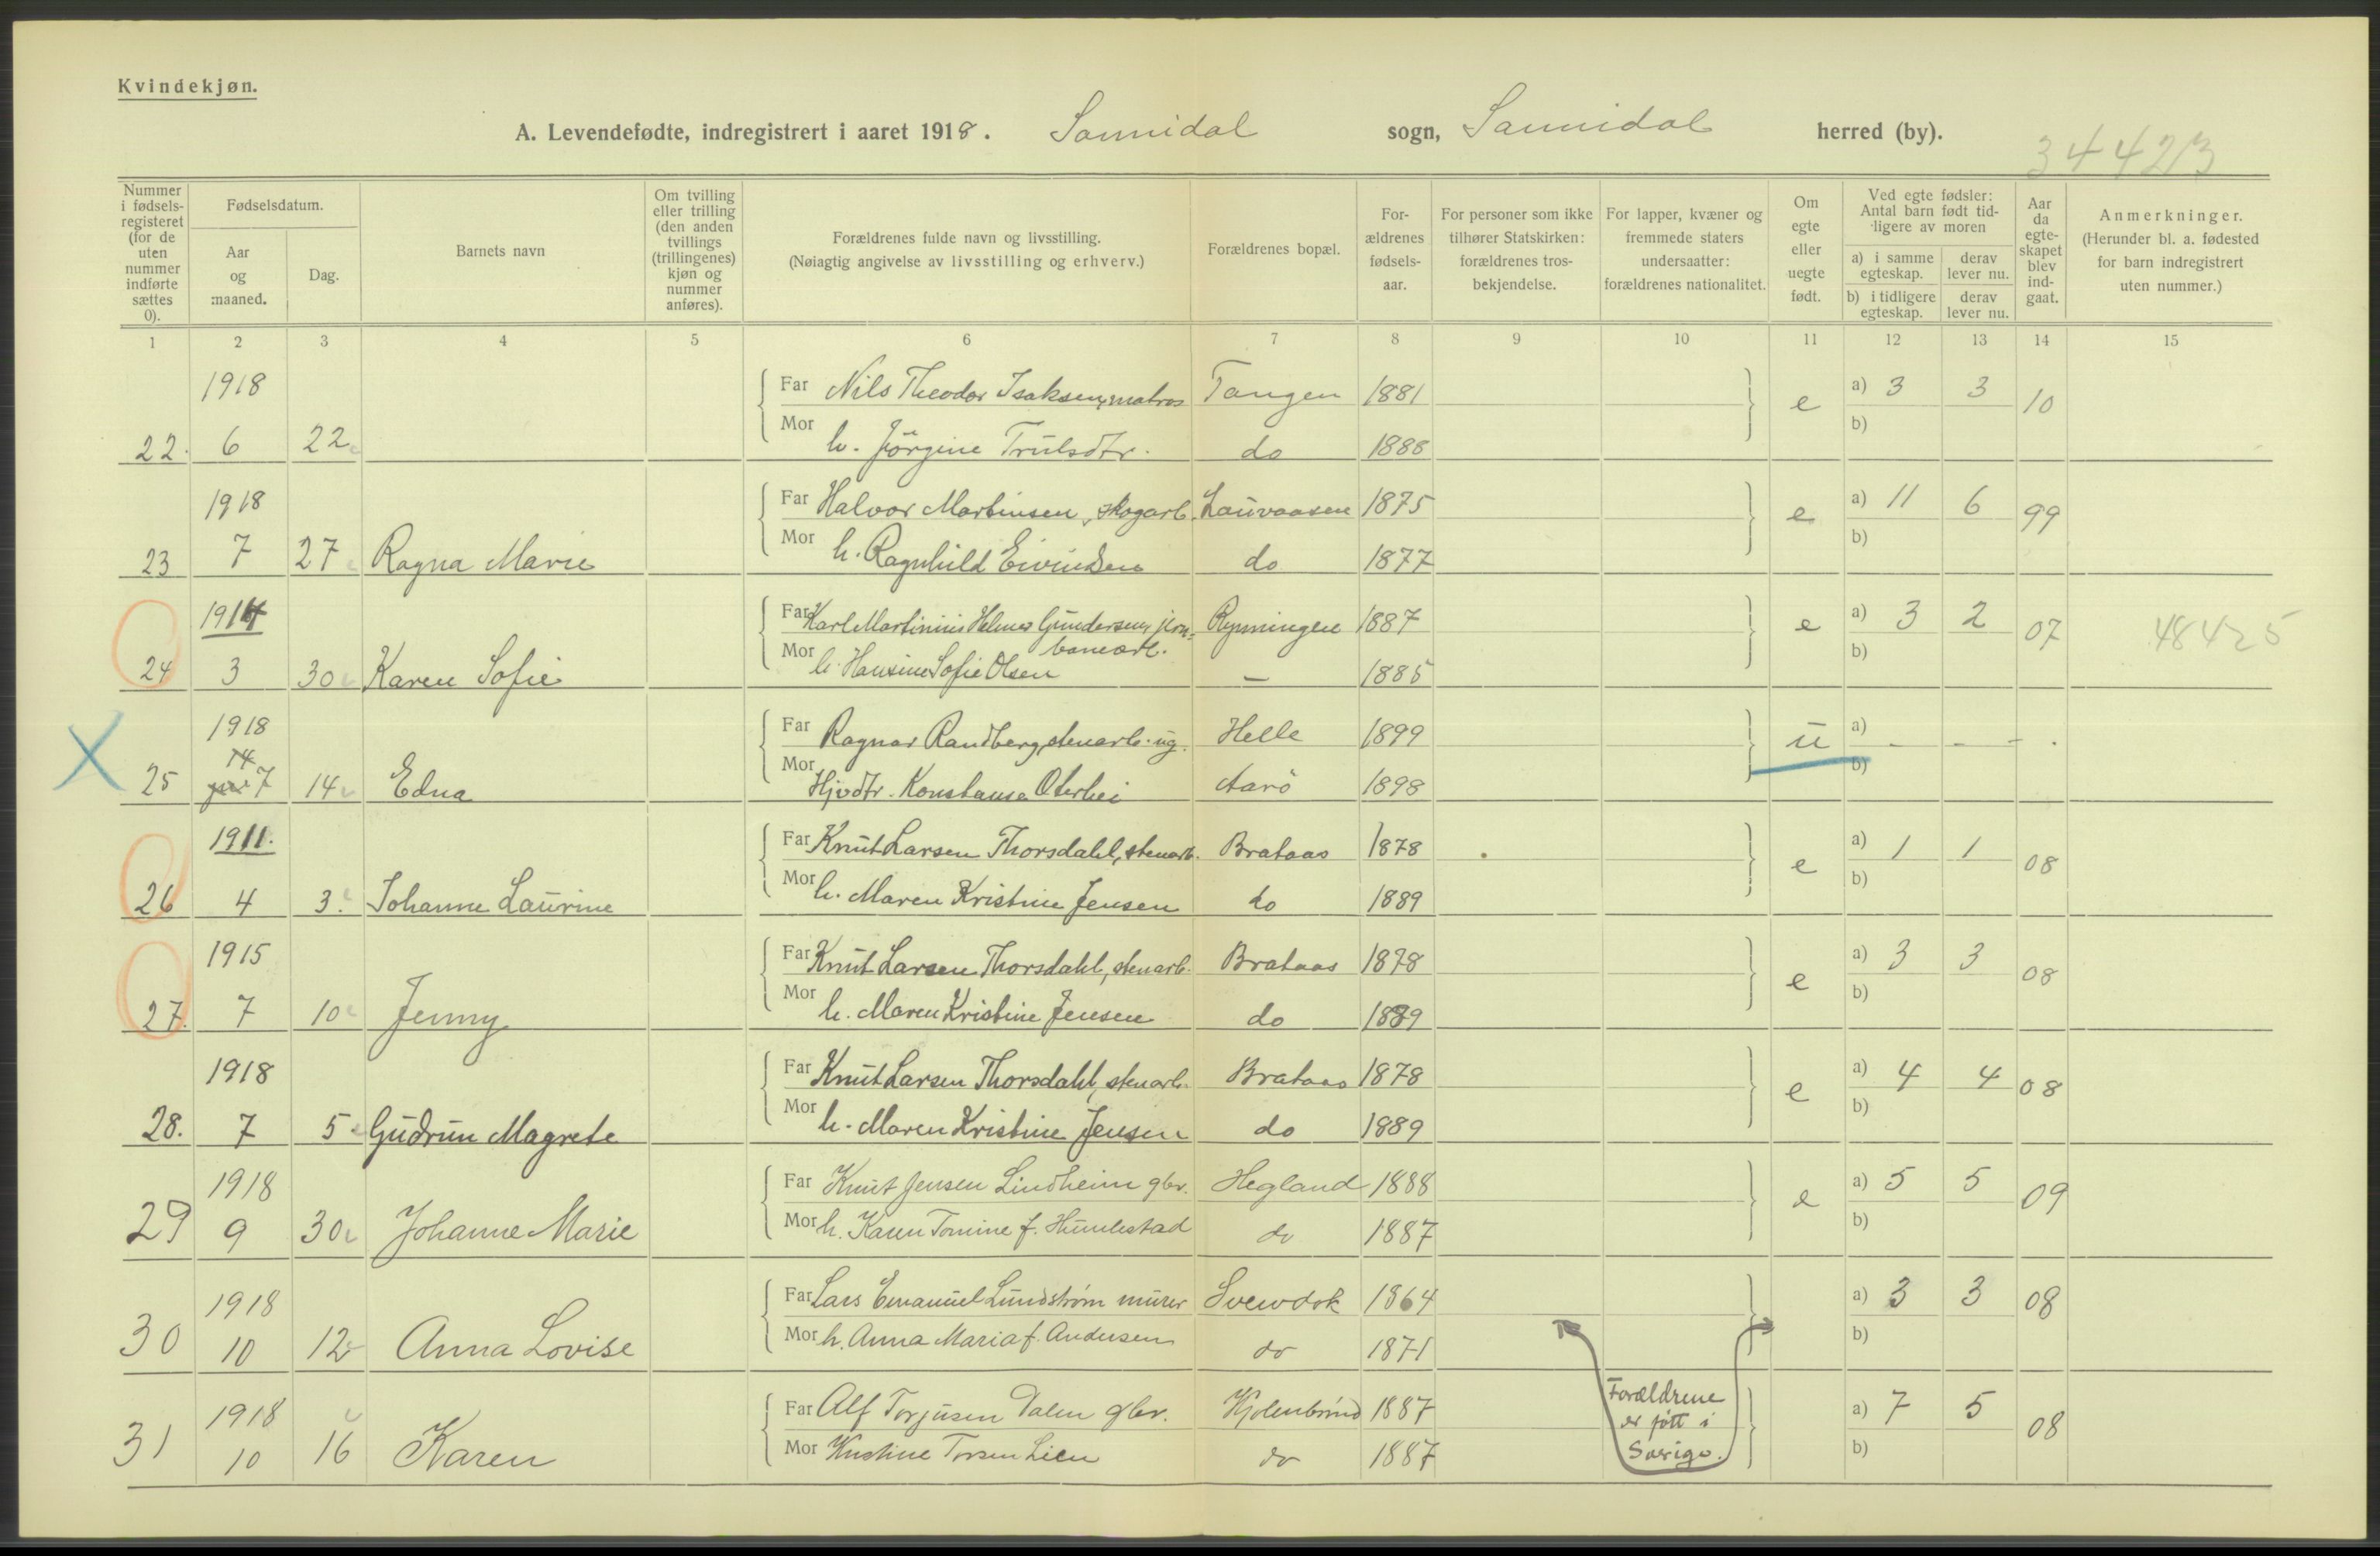 Kvindekjøn.
A. Levendefødte, indregistrert i aaret 1918. Sannidal sogn, Sannidal herred (by).
34423
Nummer i fødselsregisteret (for de uten nummer indførte sættes 0).
Fødselsdatum.
Aar og maaned.
Dag.
Barnets navn
Om tvilling eller trilling (den anden tvillings (trillingenes) kjøn og nummer anføres).
Forældrenes fulde navn og livsstilling.
(Nøiagtig angivelse av livsstilling og erhverv.)
Forældrenes bopæl.
Forældrenes fødselsaar.
For personer som ikke tilhører Statskirken: forældrenes trosbekjendelse.
For lapper, kvæner og fremmede staters undersaatter: forældrenes nationalitet.
Om egte eller uegte født.
Ved egte fødsler: Antal barn født tidligere av moren
a) i samme egteskap. derav lever nu.
b) i tidligere egteskap. derav lever nu.
Aar da egteskapet blev indgaat.
Anmerkninger.
(Herunder bl. a. fødested for barn indregistrert uten nummer.)
1 2 3 4 5 6 7 8 9 10 11 12 13 14 15
1918 Far Nils Theodor Isaksen, matros Tangen 1881 e a) 3 3 10
22. 6 22 Mor h. Jörgine Trulsdtr. do 1888 b)
1918 Far Halvor Martinsen, skogarb. Lauvaasen 1875 e a) 11 6 99
23 7 27 Ragna Marie Mor h. Ragnhild Eivindsen do 1877 b)
1914 Far Karl Martinius Helmer Gundersen, jern- Rynningen 1887 e a) 3 2 07 48425
banearb.
24 3 30 Karen Sofie Mor h. Hansine Sofie Olsen — 1885 b)
1918 Far Ragnar Randberg, stenarb. ug. Helle 1899 u a) - - - .
14
25 7 14 Edna Mor Hjvdtr. Konstanse Oterhei Aarö 1898 b)
1911. Far Knut Larsen Thorsdahl, stenarb. Brataas 1878 e a) 1 1 08
26 4 3. Johanne Laurine Mor h. Maren Kristine Jensen do 1889 b)
1915 Far Knut Larsen Thorsdahl, stenarb. Brataas 1878 e a) 3 3 08
27. 7 10 Jenny Mor h. Maren Kristine Jensen do 1889 b)
1918 Far Knut Larsen Thorsdahl, stenarb. Brataas 1878 e a) 4 4 08
28. 7 5 Gudrun Magrete Mor h. Maren Kristine Jensen do 1889 b)
1918 Far Knut Jensen Lindheim gbr. Hegland 1888 e a) 5 5 09
29 9 30 Johanne Marie Mor h. Karen Tomine f. Humlestad do 1887 b)
1918 Far Lars Emanuel Lundstrøm murer 1864 a) 3 3 08
30 10 12 Anna Lovise Mor h. Anna Maria f. Andersen do 1871 b)
1918 Far Alf Torjusen Dalen gbr. 1887 a) 7 5 08
31 10 16 Karen Mor Kristine Lien do 1887 b)
Forældrene
er født i
Sverige.